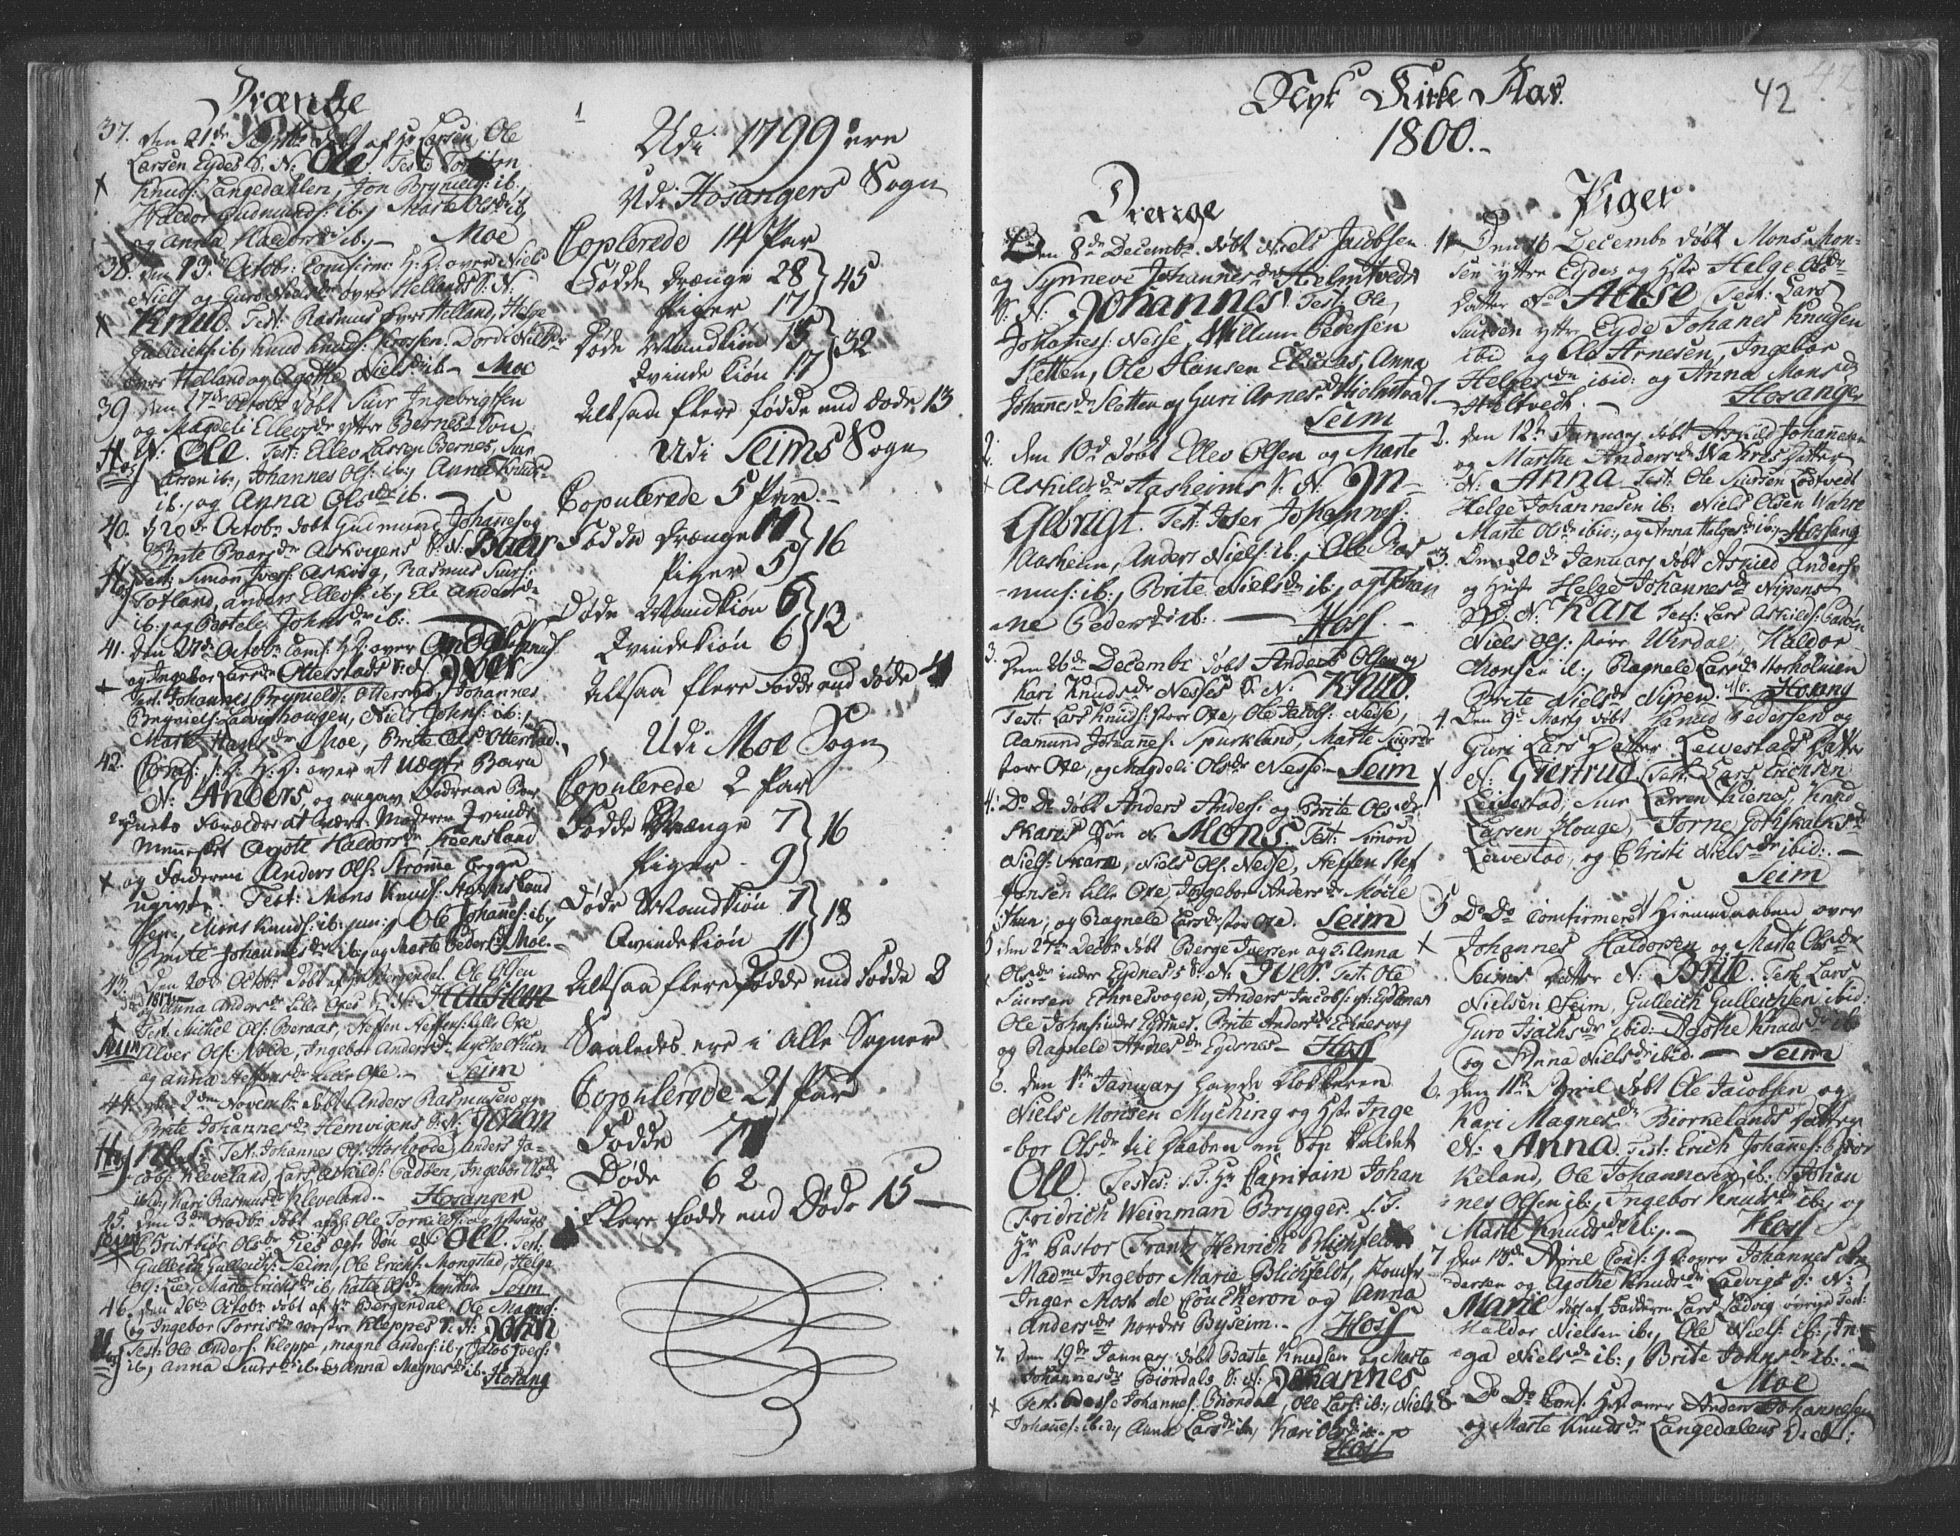 Drænge
37. den 21de Septbr døbt af Hr Larsen, Ole
Larsen Eydes S: N: Ole Test: Torsten
Knuds: Langedahlen, Jon Brynield: ib:,
Haldor Gudmunds: ib:, Marte Olsdr ib,
og Anna Haldorsdr ib:, Moe
38. den 13de Octobr: Comfirm: H: D: over Niels
Niels: og Guro Nielsdr øvre Hellands S: N:
Knud. Test: Rasmus øvre Helland, Helge
Gulleichs: ib:, Knud Knuds: Dordi Nielsdr
øvre Helland og Agotte Nielsdr ib: Moe
39 den 17de Octobr døbt Siur Ingebrigtsen
og Magdeli Ellevsdr yttre Bernes Søn
N: Ole. Test: Ellev Larsen Bernes, Siur
Larsen ib:, Johannes Ols: ib:, Anna Knudsdr
ib:, og Anna Olsdr ib.
40. d 20de Octobr døbt Gudmund Johannes: og
Brite Baarsdr Askvigens S: N: Baar
Test: Simon Ivers: Askvig, Rasmus Siurs:
Totland, anders Ellevs: ib:, Eli Andersdr
ib:, og Bertele Johnsdr ib:
41. den 27de Octobr Comf: H: D: over Knuds:
og Ingebor Larsdr Otterstads S: N: Iver
Test: Johannes Brynields: Otterstad, Johannes
Brynields: Houen, Niels Johns: ib:,
Marte Hansdr Moe, Brite Olsdr Otterstad.
42. Comf: H: D: over et Uægte Barn
N: Anders, og angav Godmoer Bar-
nets Forældre at være: Moderen Qvinde
Mennesket Agotte Haldorsdr Steensland
og Faderen Anders Ols: Strømme begge
ugivte. Test: Mons Knuds: Steensland
Sen:, Mons Knuds: ib: jun:, Ole Johannes: ib:,
Brite Johannesdr ib:, og Marte Pedersdr Moe.
43. Den 20de Octobr døbt af Hr Bergendal. Ole Olsen
og Anna Andersdr Lille Oxes S: N: Halsten
Test: Michel Ols: Beraas, Steffen Steffens: Lille Oxe
Alver Ols: Nolde, Ingebor Andersdr
og Anna Steffensdr Lille Oxe. Seim
44. den 2den Novembr døbt Anders Rasmusen og
Brite Johannesdr Hemvigens S: N: Johan
Nils: Test: Johannes Ols: Anders Ja-
cobs: Kleveland, Lars Askilds: Padøen, Ingebor Olsdr
ib:, Kari Rasmusdr Kleveland. Hosanger
45. den 3die Novbr døbt af Hr: Ole Torkilds: og
Christbiør Olsdr Lies ægte Søn N: Oll. Test:
Gulleich Gulleichs: Seim, Ole Erichs: Mongstad, Helge
Ols: Lie, Marte Erichsdr ib, Kari Olsdr Monstad Seim
46. den 26de Octobr døbt af Hr Bergendal, Ole Magnes:
og Ingebor Torrisdr vestre Kleppes S: N: John
Test: Ole Anders: Kleppe, magne Anders: ib, Jacob Ivers:
ib, anna Siursdr ib. og Anna Magnesdr ib. Hosang
Udi 1799 ere
Udi Hosangers Sogn
Copulerede 14 Par
Fødde Drænge 28 } 45
Piger 17
Døde Mandkiøn 15 } 32
Qvinde kiøn 17
Altsaa flere fødde end døde 13
Udi Seims Sogn
Copulerede 5 Par
Fødde Drænge 11 } 16
Piger 5
Døde Mandkiøn 6 } 12
Qvindekiøn 6
Altsaa flere fødde end døde 4
Udi Moe Sogn
Copulerede 2 Par
Fødde Drænge 7 } 16
Piger 9
Døde Mandkiøn 7 } 18
Qvindekiøn 11
Altsaa flere Døde end Fødde 2
Saaledes ere i Alle Sogner
Copulerede 21 Par
Fødde 77
Døde 62
Flere fødde end Døde 15
42
Nyt Kirke Aar.
1800.
Drenge
1. Den 8de Decembr døbt Niels Jacobsen
og Synneve Johannesdr Hielmtvedts
S: N: Johannes Test: Ole
Johanes: Nesse, Willum Pedersen
Sletten, Ole Hansen Elsaas, Anna
Johannesdr Sletten og Guri Arnesdr Hielmtvedt
Seim
2. den 10de døbt Ellev Olsen og Marte
Askildsdr Aasheims S: N: In-
gebrigt. Test: Iver Johannes:
Aasheim, Anders Niels: ib:, Ole Ras-
mus: ib:, Brite Nielsdr ib:, og Johan
-ne Pedersdr ib: Hoss
3. Den 26de Decembr døbt Anders Olsen og
Kari Knudsdr Nesses S: N: Knud.
Test: Lars Knuds: store Oxe, Ole Jacobs: Nesse,
Aamund Johannes: Spurkland, Marte Siursdr
store Oxe, og Magdeli Olsdr Nesse. Seim
4. Do Do døbt Anders Anders: og Brite Olsdr
Skaras Søn N: Mons. Test: Simon
Niels: Skare, Niels Ols: Nesse, Steffen Stef
fensen lille Oxe, Ingebor Andersdr
og Ragnele Larsdr store Oxe. Seim
5 den 27de Decbr døbt Berge Iversen og Anna
Olsdr indre Eydnes S: N: Iver Test: Ole
Siursen Eydnesvogen, Anders Jacobs: yt: Eydsnæs
Ole Johns: indre Eydnes, Brite Andersdr Eidnesvog
og Ragnele Arnesdr Eydsnes. Hoss
6. Den 1te Januarj havde Klokkeren
Niels Monsen Myching og Hst: Inge
-bor Olsdr til Daaben en Søn kaldet
Oll. Testes: S: T: Hr Capitain Johan
Fridrich Weinman Brygger. S: T:
Hr Pastor Frantz Henrich Blichfeldt
Madme Ingebor Marie Blichfeldt, Jomfr
Inger Most de Coucheron og Anna
Andersdr nordre Byseim. Hoss
7. Den 19de Januarj døbt Baste Knudsen og Marte
Johannesdr Biørdals S: N: Johannes
Test: Johannes: Biørdal, Ole Lars: ib:, Niels
Johanes: ib:, Anna Larsdr ib, Kari Olsdr ib.
Hoss
Piger
1. Den 16 Decembr døbt Mons Mon-
sen yttre Eydes og Hst: Helge Olsdr
Datter Ved N: Aelse Test: Lars
Siursen yttre Eyde, Johanes Knudsen
ibid og Ole Arnesen, Ingebor
Helgesdr ibid: og Anna Monsdr
Hosanger
2. den 12te Januarj døbt Askild Johannesen
og Marthe Andersdr Wahres Datter
N: Anna Test: Ole Siursen Løtvedt
Helge Johannesen ib: Niels Olsen Wahre
Marte Olsdr ibid:, og Anna Helgesdr ib:, Hossang
3. Den 20de Januarj døbt Askild Anders:
og Hust: Helge Johannesdr Nipens
D: N: Kari Test: Lars Askilds: Padøen
Niels Ols: store Urdal, Haldor
Monsen ib:, Ragnele Larsdr Storholmen
Brite Nielsdr Nipen. Hosang
4. Den 9de Martj døbt Knud Pedersen og
Guri Lars Datter Leevestads Datter
N: Giertrud Test: Lars Erichsen
Leivestad, Siur Larsen Kienes, Knud
Larsen Houge, Torne Gotskalksdr
Leivestad, og Christi Nielsdr ibid:.
Seim
5 Do Do Comfirmeret Hiemedaaben over
Johannes Haldorsen og Marta Olsdr
Seims Datter N: Brite. Test: Lars
Nielsen Seim, Gulleich Gulleichsen ibid:
Guro Isachsdr ibid: Agothe Knudsdr ib
og Anna Nielsdr ibid. Seim
6. Den 11te April døbt Ole Jacobsen og
Kari Magnesdr Biørnelands Datter
N: Anna. Test: Erich Johanes: Biør
neland, Ole Johannesen ib: Johan
nes Olsen ib:, Ingebor Knudsdr ib:, og
Marte Knudsdr ib:, Hoss
7. Den 13de April Conf: H: D: over Johannes An-
dersen og Agothe Knudsdr Ladvigs D: N:
Marie døbt af Faderen Lars Ladvig øvrige Test:
Haldor Nielsen ib:, Ole Niels: ib:, In-
ga Nielsdr ib:, Brite Johnsdr ib:
Moe
8. Do Do Conf: H: D: over Anders Johannesen
og Marte Knudsdr Langedalens D: N: